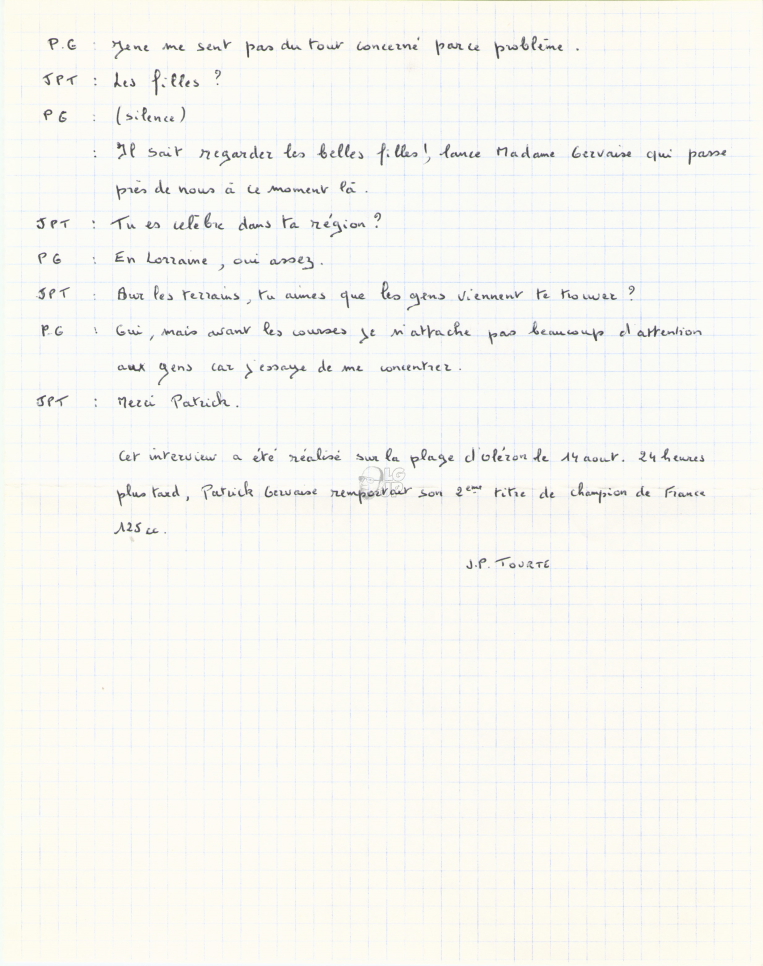 P.G : Je ne me sent pas du tout concerné par ce problème.
JPT : Les filles ?
PG : (silence)
: Il sait regarder les belles filles !, lance Madame Gervaise qui passe
près de nous à ce moment là.
JPT : Tu es célèbre dans ta région ?
PG : En Lorraine, oui assez.
JPT : Sur les terrains, tu aimes que les gens viennent te trouver ?
P.G : Oui, mais avant les courses je n'attache pas beaucoup d'attention
aux gens car j'essaye de me concentrer.
JPT : Merci Patrick.
Cet interview a été réalisé sur la plage d'oléron le 14 aout. 24 heures
plus tard, Patrick Gervaise remportait son 2ème titre de champion de France
125 cc.
J.P. TOURTE